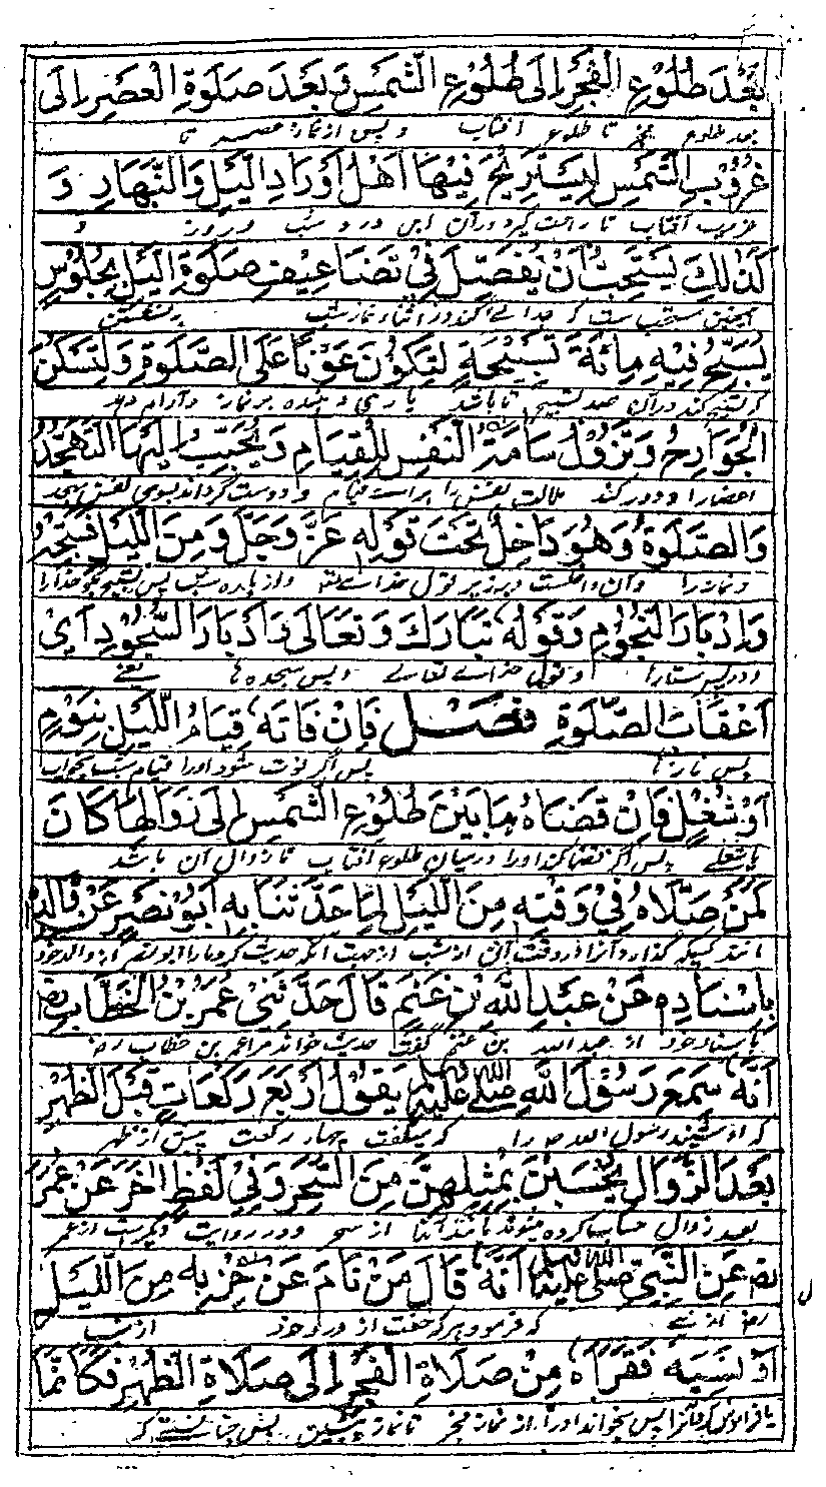 بَعْدَ طُلُوْعِ الْفَجْرِ اِلٰی طُلُوْعِ الشَّمْسِ وَبَعْدَ صَلَوةِ الْعَصْرِ اِلٰی
بعد طلوع فجر تا طلوع آفتاب و پس از نماز عصر تا
غُرُوْبِ الشَّمْسِ لِیَسْتَرِیْحَ فِیْهَا اَهْلُ اَوْرَادِ اللَّیْلِ وَالنَّهَارِ وَ
غروب آفتاب تا راحت گیرد در آن اہل ورد شب و روز و
کَذٰلِكَ یَسْتَحِبُّ اَنْ یُفْصَلَ فِیْ تَضَاعِیْفِ صَلَوةِ اللَّیْلِ بِجُلُوْسٍ
همچنین مستحب ست که جدائی کند در اثناء نماز شب به نشستن
یُسَبِّحُ فِیْهِ مِائَةَ تَسْبِیْحَةٍ لِتَکُوْنَ عَوْنًا عَلَی الصَّلَوةِ وَلِتَسْکُنَ
که تسبیح کند در آن صد تسبیح تا باشد یاری دهنده بر نماز و آرام دهد
الْجَوَارِحُ وَتَزُوْلُ سَآمَةُ النَّفْسِ لِلْقِیَامِ وَیُحَبِّبُ اِلَیْهَا التَّهَجُّدُ
اعضا را و دور کند ملالت نفس را براے قیام و دوست گرداند بسوی نفس تهجد
وَالصَّلَوةُ وَهُوَ دَاخِلٌ تَحْتَ قَوْلِهٖ عَزَّ وَجَلَّ وَمِنَ اللَّیْلِ فَسَبِّحْهُ
و نماز را و آن داخلست در زیر قول خداے و از پاره شب پس تسبیح گو خدا را
وَاِدْبَارَ النُّجُوْمِ وَقَوْلُهٗ تَبَارَكَ وَتَعَالٰی وَاَدْبَارَ السُّجُوْدِ اَیْ
و در پس ستارها و قول خداے تعالے و پس سجده ها یعنے
اَعْقَابَ الصَّلَوةِ فصل فَاِنْ فَاتَهٗ قِیَامُ اللَّیْلِ بِنَوْمٍ
پس نمازها پس اگر فوت شود او را قیام شب بخواب
اَوْ شُغْلٍ فَاِنْ قَضَاهُ مَا بَیْنَ طُلُوْعِ الشَّمْسِ اِلٰی زَوَالِهَا کَانَ
یا شغلے پس اگر قضا کند او را درمیان طلوع آفتاب تا زوال آن باشد
کَمَنْ صَلَّاهُ فِیْ وَقْتِهٖ مِنَ اللَّیْلِ لِمَا حَدَّثَنَا بِهٖ اَبُوْ نَصْرٍ عَنْ وَّالِدِهٖ
مانند کسیکه گذارد آنرا در وقت آن از شب از جهت آنکه حدیث کرد ما را ابو نصر از والد خود
بِاِسْنَادِهٖ عَنْ عَبْدِ اللّٰهِ بْنِ غَنَمٍ قَالَ حَدَّثَنِیْ عُمَرُ بْنُ الْخَطَّابِ رض
باسناد خود از عبد اللہ بن غنم گفت حدیث خواند مرا عمر بن خطاب رض
اَنَّهٗ سَمِعَ رَسُوْلَ اللّٰهِ صلی اللہ علیہ وسلم یَقُوْلُ اَرْبَعَ رَکَعَاتٍ قَبْلَ الظُّهْرِ
که او شنید رسول اللہ ص را که میگفت چهار رکعت پیش از ظهر
بَعْدَ الزَّوَالِ یُحْسَبْنَ بِمِثْلِهِنَّ مِنَ السَّحَرِ وَفِیْ لَفْظٍ اٰخَرَ عَنْ عُمَرَ
بعد زوال حساب کرده میشوند مانند آنها از سحر و در روایت دیگر است از عمر
رض عَنِ النَّبِیِّ صلی اللہ علیہ وسلم اَنَّهٗ قَالَ مَنْ نَامَ عَنْ حِزْبِهٖ مِنَ اللَّیْلِ
رض از نبے که فرمود هر که خفت از ورد خود از شب
اَوْ نَسِیَهٗ فَقَرَأَهٗ مِنْ صَلَاةِ الْفَجْرِ اِلٰی صَلَاةِ الظُّهْرِ فَکَاَنَّمَا
یا فراموش کرد آنرا پس بخواند او را از نماز فجر تا نماز پیشین پس چنانستے که